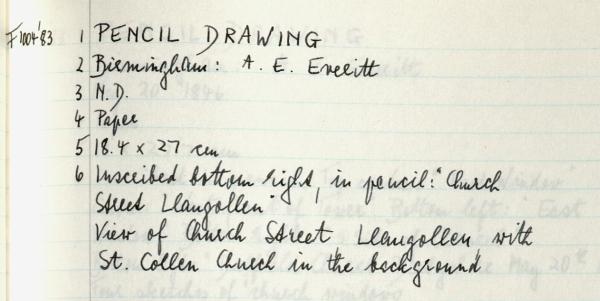 F1004'83 1 PENCIL DRAWING
2 Birmingham: A. E. Everitt
3 N.D.
4 Paper
5 18.4 x 27 cm
6 Inscribed bottom right, in pencil: "Church
Street Llangollen"
View of Church Street Llangollen with
St. Collen Church in the background